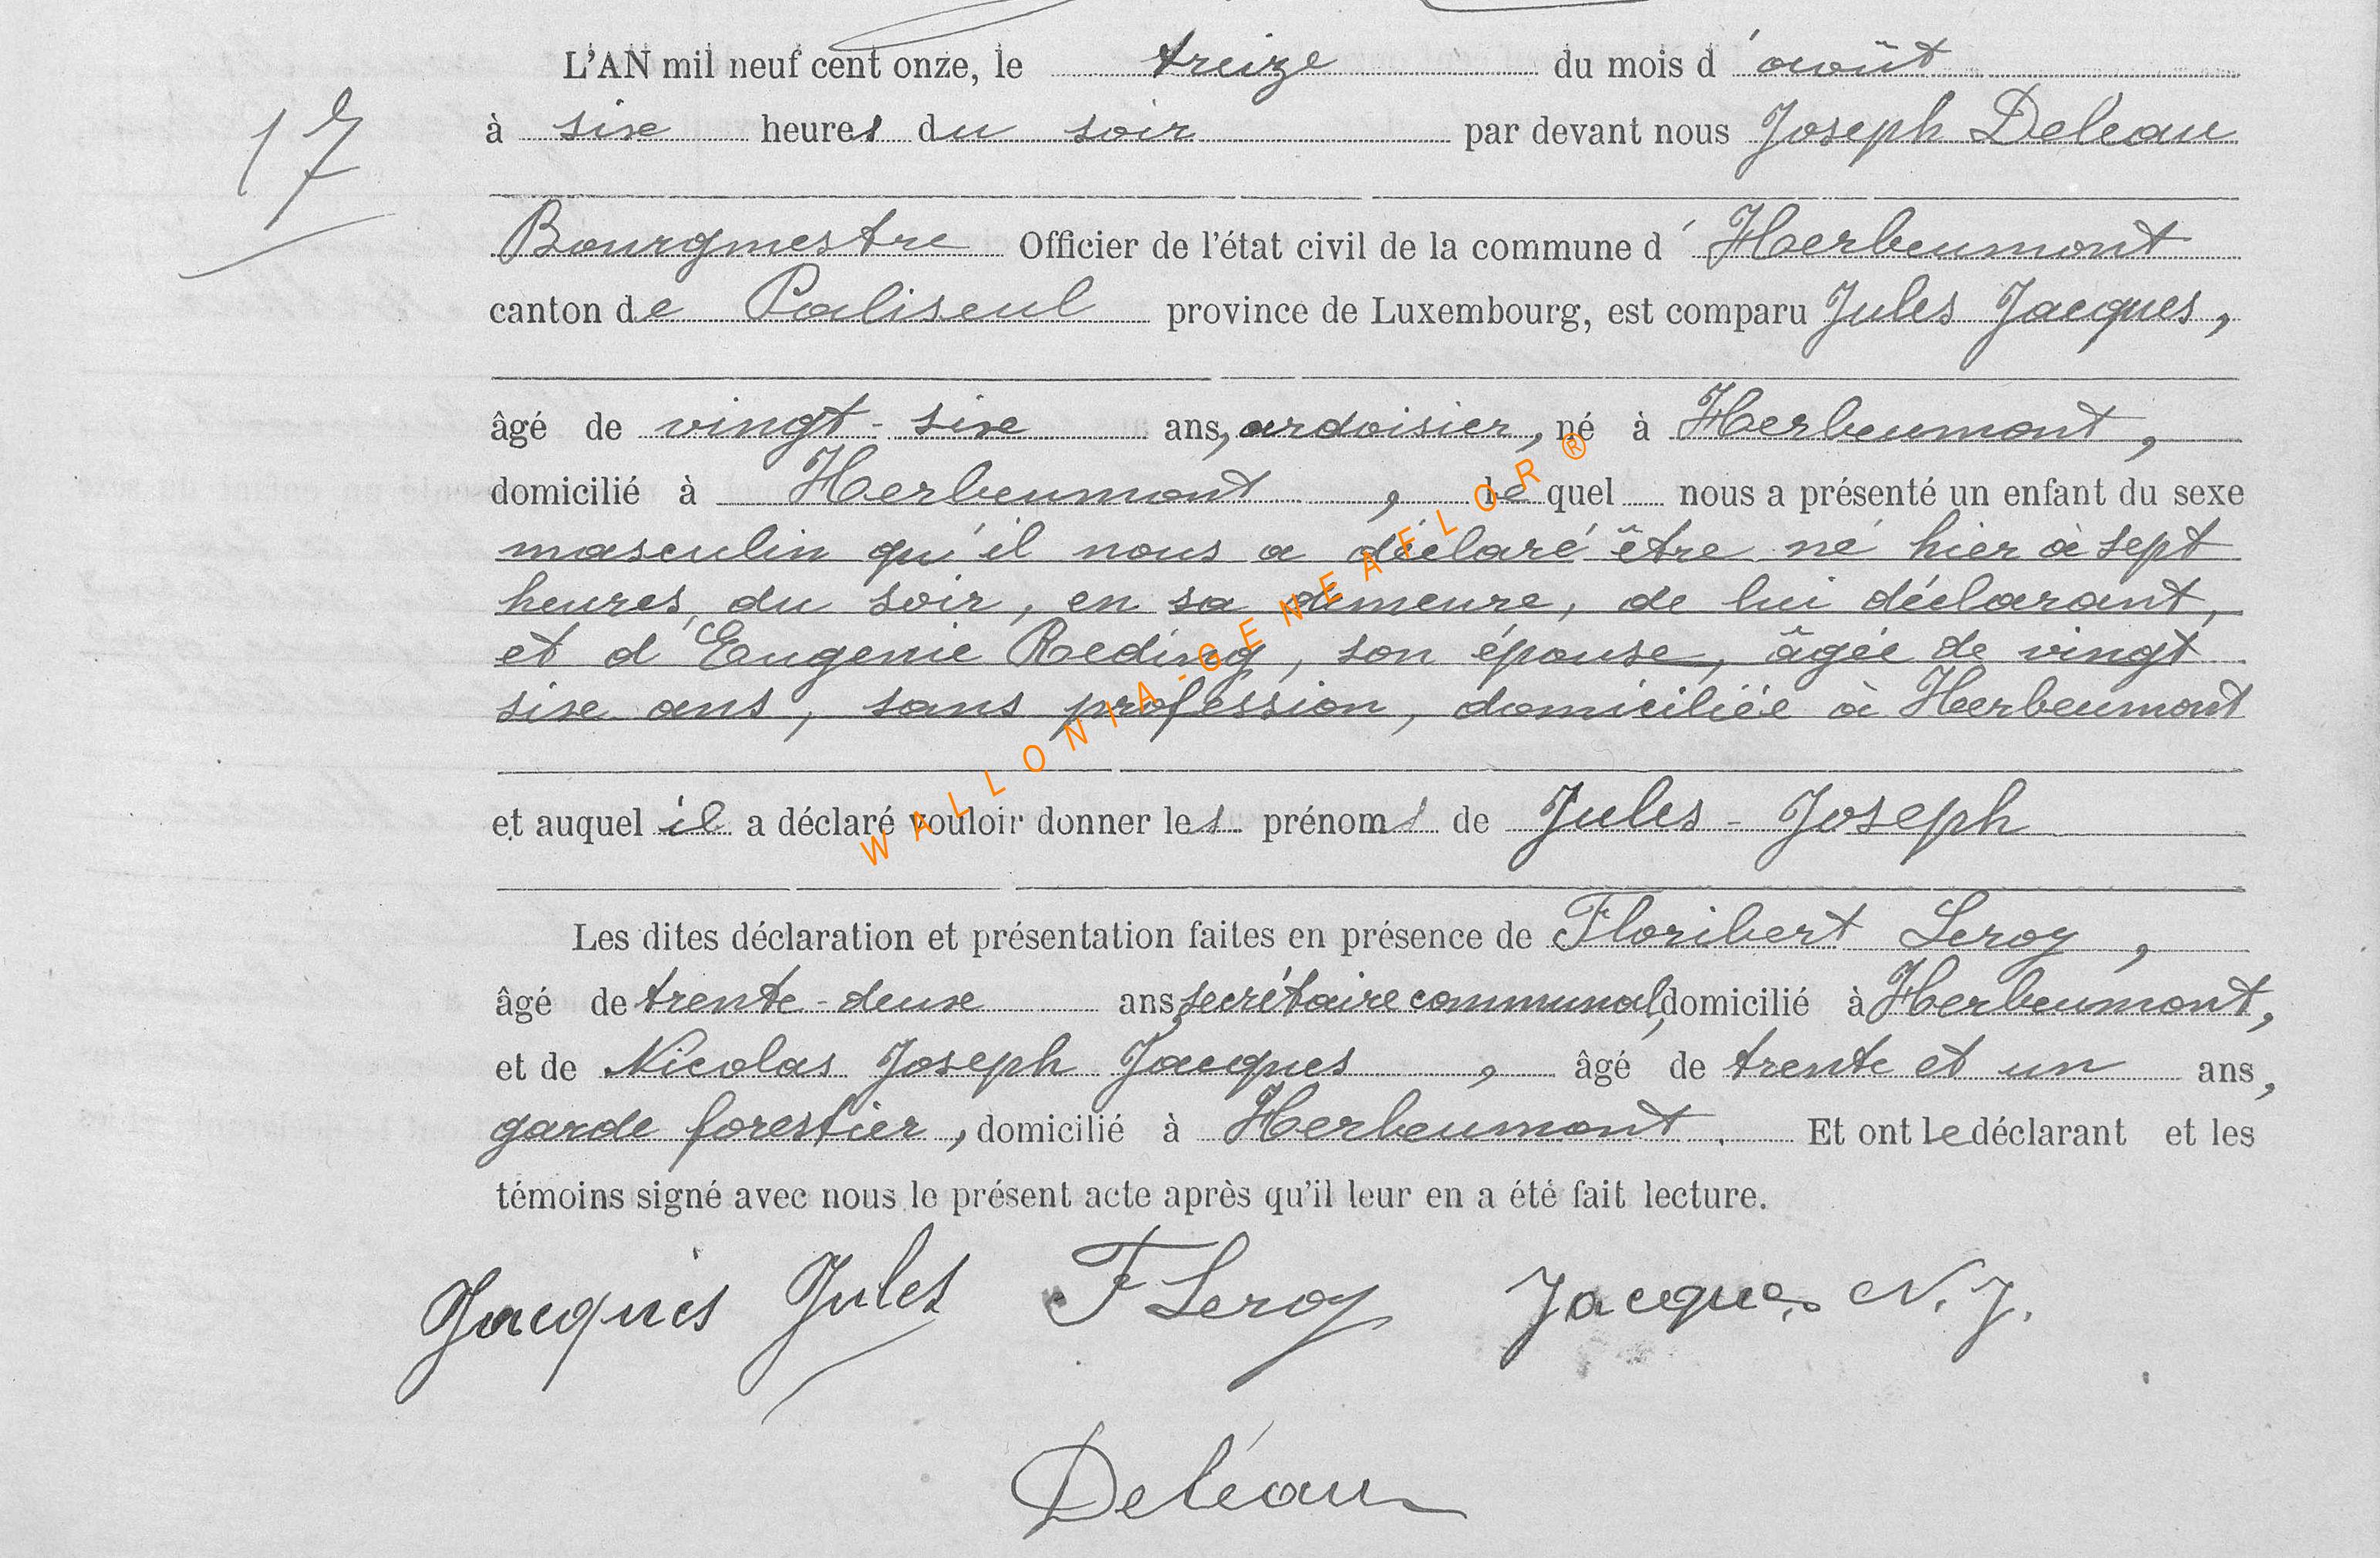 L'AN mil neuf cent onze, le treize du mois d'août
17
à six heures du soir par devant nous Joseph Deleau
Bourgmestre Officier de l'état civil de la commune d'Herbeumont
canton de Paliseul province de Luxembourg, est comparu Jules Jacques,
âgé de vingt-six ans, ardoisier, né à Herbeumont,
domicilié à Herbeumont, lequel nous a présenté un enfant du sexe
masculin qu'il nous a déclaré être né hier à sept
heures du soir, en sa demeure, de lui déclarant,
et d'Eugenie Reding, son épouse, âgée de vingt
six ans, sans profession, domiciliée à Herbeumont
et auquel il a déclaré vouloir donner les prénoms de Jules-Joseph
Les dites déclaration et présentation faites en présence de Floribert Leroy,
âgé de trente-deux ans, secrétaire communal, domicilié à Herbeumont,
et de Nicolas Joseph Jacques, âgé de trente et un ans,
garde forestier, domicilié à Herbeumont. Et ont le déclarant et les
témoins signé avec nous le présent acte après qu'il leur en a été fait lecture.
Jacques Jules F Leroy Jacques N. J.
Deléau
WALLONIA-GENEAFLOR®